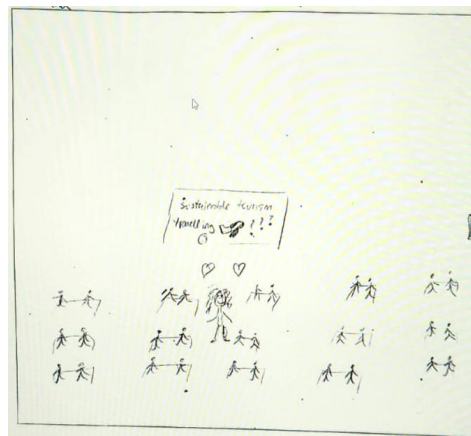 Sustainable tourism
Travelling ???